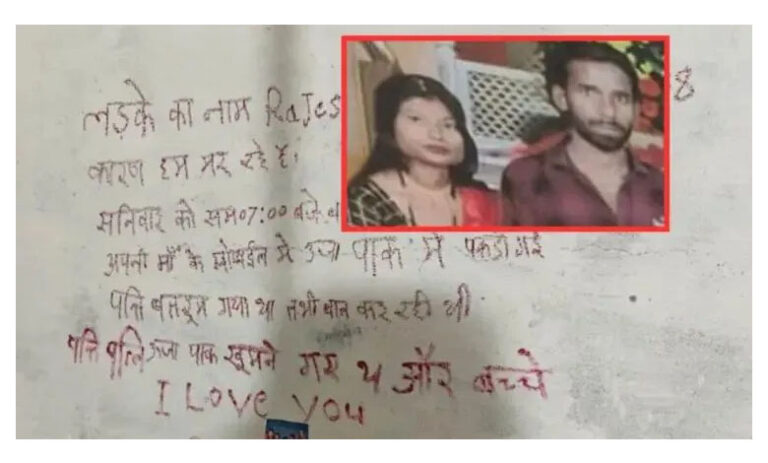 लड़के का नाम RaJes 8
कारण हम मर रहे है।
सनिवार को सम07:00 बजे
अपनी माँ के मोबाईल मे ऊजा पाक में पकडी गई
पत्ति बातरूम गया था तभी बात कर रही थी
पत्ति पत्नि ऊजा पाक घूमने गए थ और बच्चे
I Love You